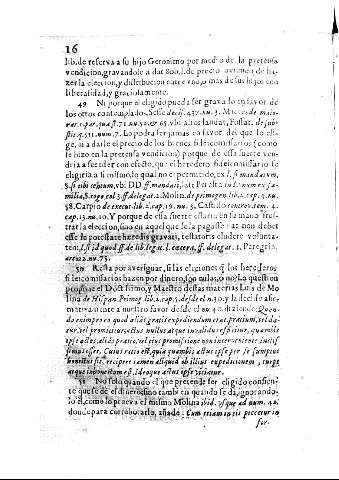 16
lib. de reserva a su hijo Geronimo por medio de la pretensa
vendicion, gravandole a dar 800.l. de precio aviendo de ha-
zer la eleccion, y distribucion entre uno, o mas de sus hijos con
liberalidad, y graciosamente.
49 Ni porque el eligido pueda ser gravado en favor de
los otros contemplados, Sesse decis. 437. nu. 3. Mieres de maior-
rat. 1. par. quæst. 71. nu. 52. & 65. ubi alios laudat, Fossar. de subs-
tit. q. 511. num. 7. Lo podra ser jamas en favor del que lo eli-
ge, ni a darle el precio de los bienes fideicomissarios (como
se hizo en la pretensa vendicion) porque de essa suerte ven-
dria a suceder con efecto, que el heredero fideicomissario se
eligiria a si mismo, lo qual no er permitido, ex l. si mandavero,
§. si tibi centum, ubi DD. ff. mandati, late Peralta in l. unum ex fa-
milia, §. rogo, col. 3. ff. de legat. 2. Molin. de primogen. lib. 2. cap. 4. nu.
58. Carpio de execut. lib. 2. cap. 19. nu. 5. Castillo controv. tom. 4.
cap. 13. nu. 10. Y porque de essa suerte estaria en su mano frus-
trar la eleccion, sino en aquel que se la pagasse: ac non debet
esse in potestate heredis gravati, testatoris eludere volunta-
tem, l. si id quod ff. de legat. l. cætera, ff. de legat. 1. Peregrin.
art. 22. nu. 73.
50 Resta por averiguar, si las elecciones q̃ los herederos
fideicomissarios hazen por dinero, son nulas, o no. La question
propone el Doctissimo, y Maestro destas materias Luis de Mo-
lina de Hispan. Primog. lib. 2. cap. 5. desde el n. 30. y la decide afir-
mativamente a nuestro favor desde el nu. 40. diziendo: Quan-
do enim pro eo quod aliàs gratis expediendum erat, pretium, vel da-
tur, vel promittitur, actus nullus atque invalidus efficitur, quamvis
ipse actus, aliàs pretio, vel eius promissione non interveniente iustis-
simus esset. Cuius ratio est, quia quamvis actus ipse per se sumptus
honestus sit, recipere tamen aliquid ob illius expeditionem, turpe
atque inhonestum est, ideoque actus ipse vitiatur.
51 No solo quando el que pretende ser eligido consien-
te que se de el dinero, sino tambien quando se da, ignorando-
lo el, como lo prueva el mismo Molina ibid. usque ad num. 42.
donde para corroborarlo, añade: Cum etiam in eis peccetur in
for-